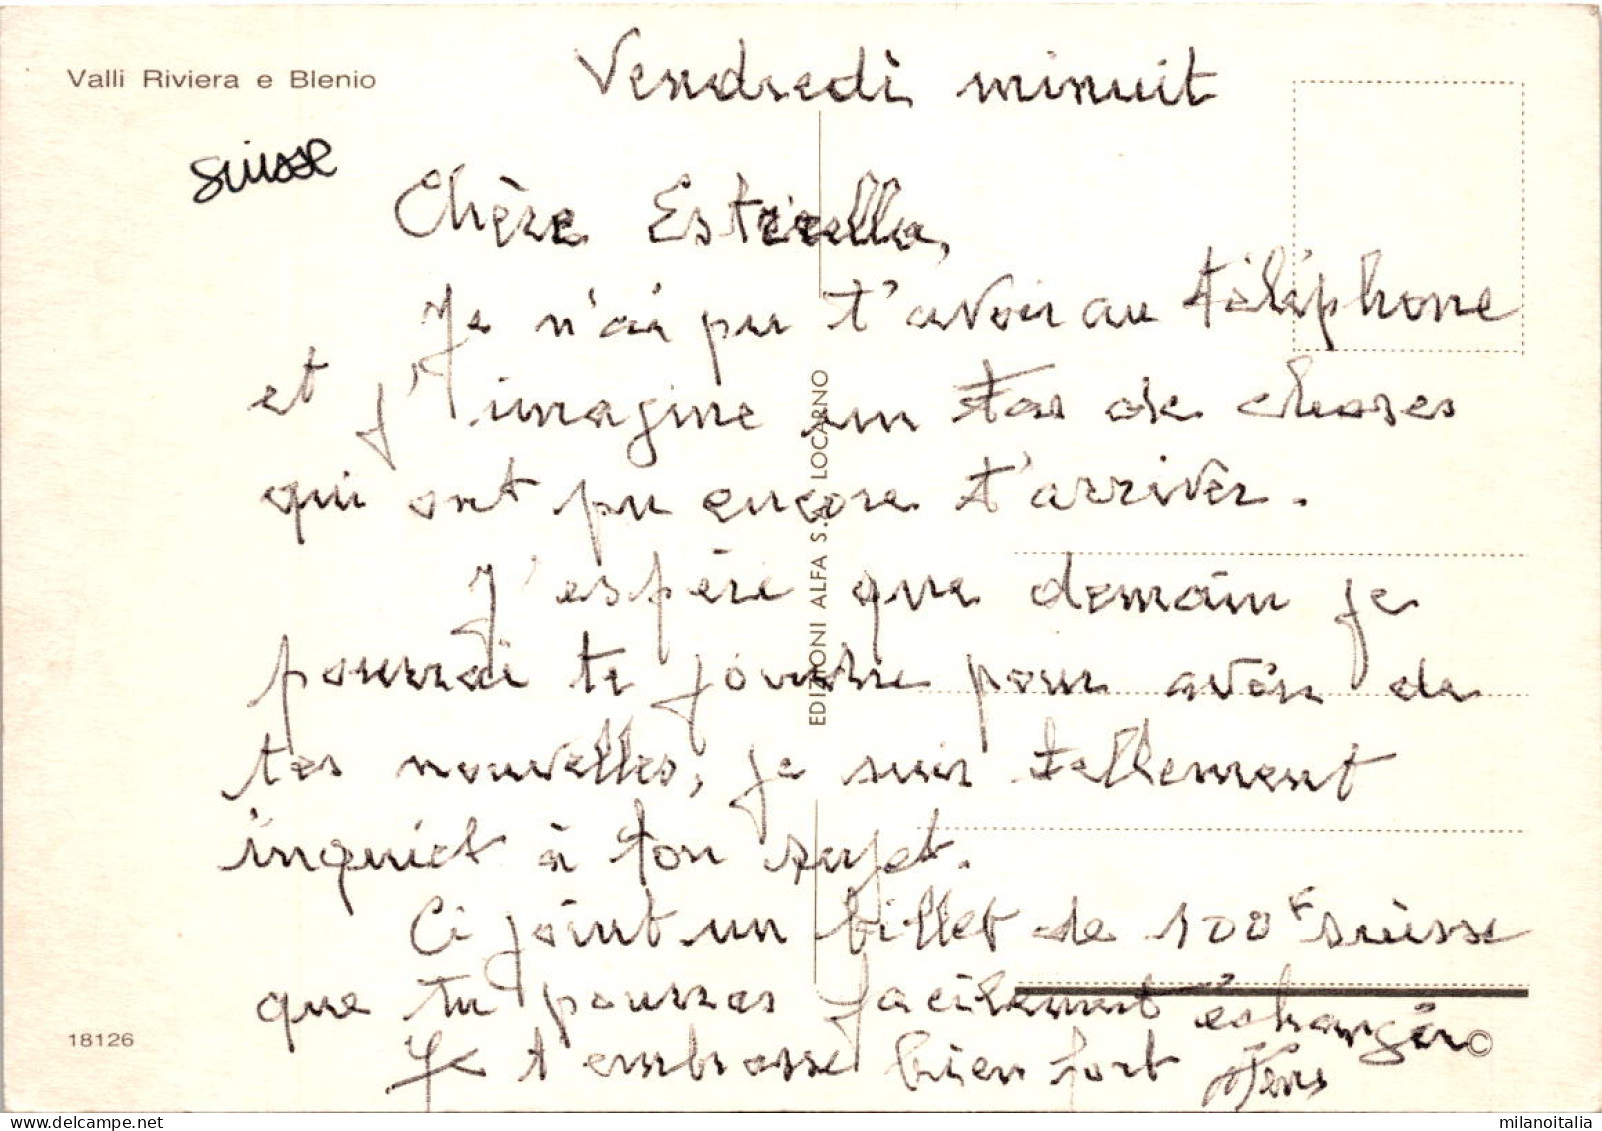 Valli Riviera e Blenio
suisse
Vendredi minuit
Chère Estrella,
Je n'ai pu t'avoir au téléphone
et j'imagine un tas de choses
qui ont pu encore t'arriver.
J'espère que demain je
pourrai te joindre pour avoir de
tes nouvelles, je suis tellement
inquiet à ton sujet.
Ci joint un billet de 100 F suisse
que tu pourras facilement échanger
Je t'embrasse bien fort
EDIZIONI ALFA S. LOCARNO
18126
©
milanoitalia